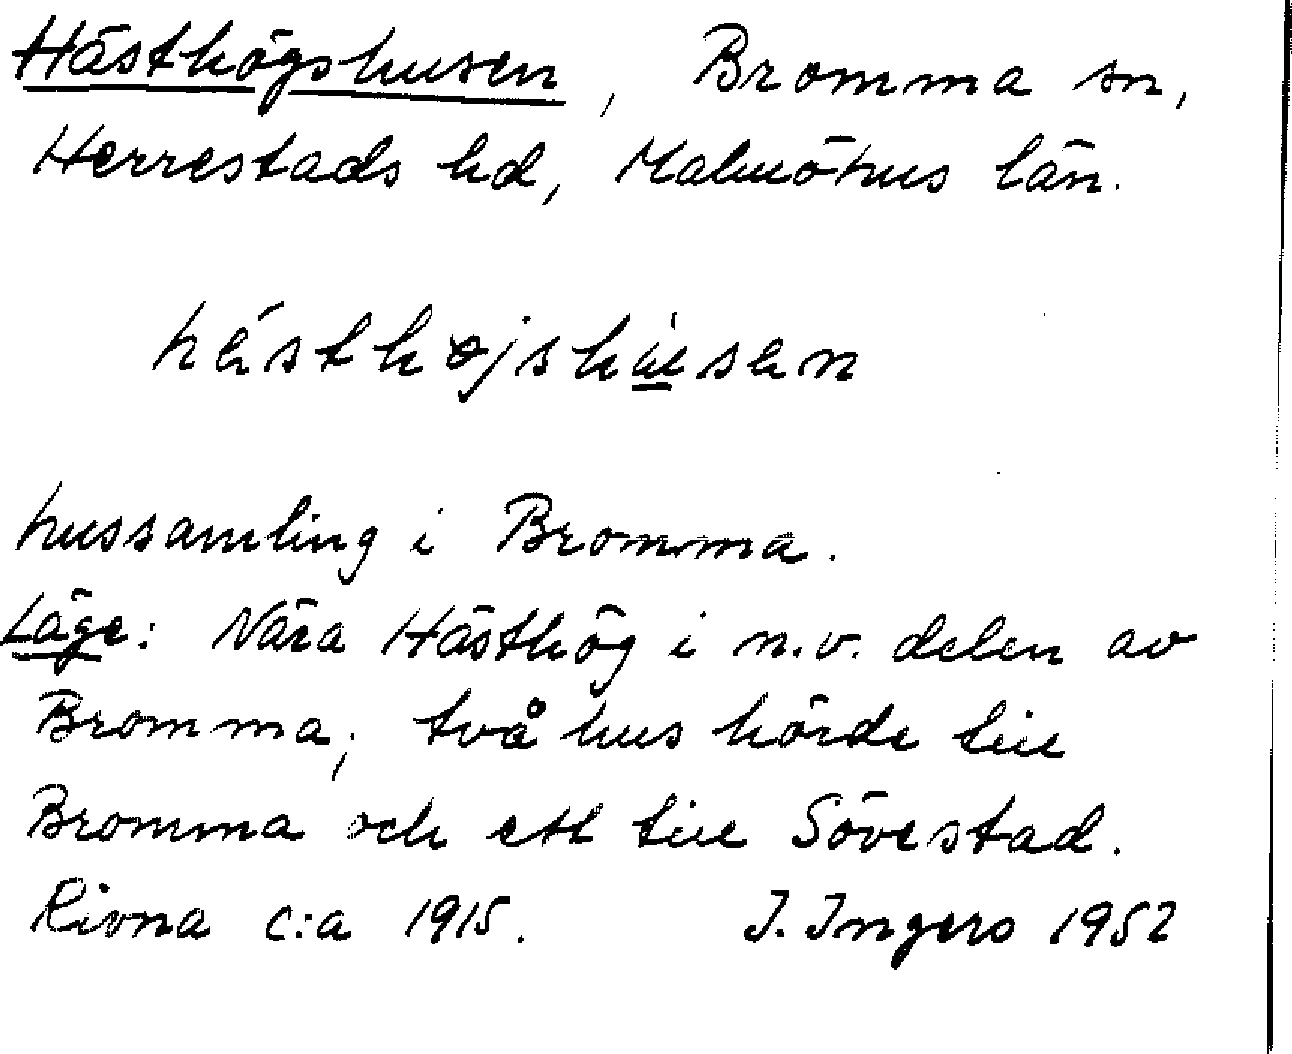 Hästhögshusen, Bromma sn,
Herrestads hd, Malmöhus län.
hästhøjshùsan
hussamling i Bromma.
Läge: Nära Hästhög i n.v. delen av
Bromma; två hus hörde till
Bromma och ett till Sövestad.
Rivna c:a 1915. I. Ingers 1952